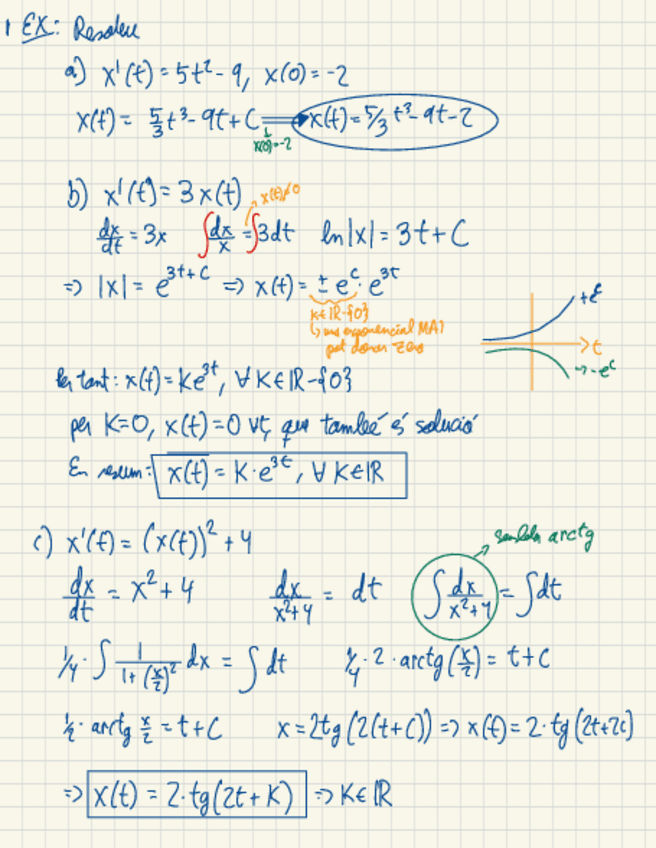 1 EX: Resoleu
a) x'(t) = 5t² - 9, x(0) = -2
x(t) = 5/3 t³ - 9t + C ⟹ x(t) = 5/3 t³ - 9t - 2
x(0)=-2
b) x'(t) = 3x(t)
x(t)≠0
dx/dt = 3x ∫dx/x = ∫3dt ln|x| = 3t + C
⇒ |x| = e^{3t+C} ⇒ x(t) = ± e^c · e^{3t}
K∈ℝ-{0}
↳ una exponencial MAI
pot donar zero
+e^c
t
→ -e^c
Per tant: x(t) = Ke^{3t}, ∀K∈ℝ-{0}
per K=0, x(t)=0 ∀t, que també és solució
En resum: x(t) = K·e^{3t}, ∀K∈ℝ
c) x'(t) = (x(t))² + 4
sembla arctg
dx/dt = x² + 4 dx/x²+4 = dt ∫dx/x²+4 = ∫dt
1/4 · ∫ 1/1+(x/2)² dx = ∫dt 1/4 · 2 · arctg(x/2) = t+C
1/2 · arctg x/2 = t+C x = 2tg(2(t+C)) ⇒ x(t) = 2·tg(2t+2C)
⇒ x(t) = 2·tg(2t+K) ⇒ K∈ℝ